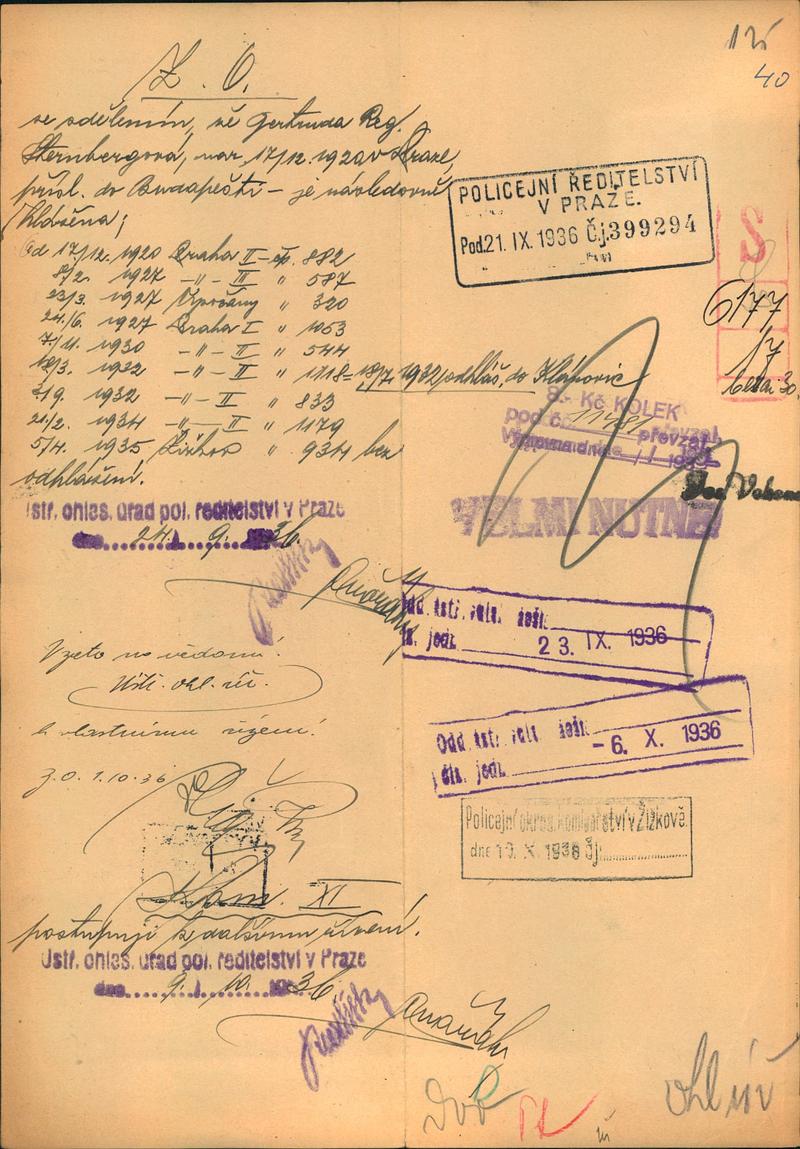 40
Z. O.
se sdělením, že Gertruda Reg.
Sternbergová, nar. 17/12. 1920 v Praze,
přísl. do Budapešti – je následovně
hlášena;
Od 17/12. 1920 Praha II – čp. 882
8/2. 1927 –"– III " 587
23/3. 1927 Vysočany " 320
24./6. 1927 Praha I " 1053
7/11. 1930 –"– II " 544
18/3. 1922 –"– II " 1118 – 18/7. 1932 odhláš. do
3/9. 1932 –"– II " 833
21/2. 1934 –"– II " 1179
5/4. 1935 Žižkov " 934 bez
odhlášení.
Ústř. ohlaš. úřad pol. ředitelství v Praze
dne 24. 9. 36.
POLICEJNÍ ŘEDITELSTVÍ
V PRAZE.
Pod. 21. IX. 1936 Čj. 399294
S
6177
17
8.- Kč KOLEK
pod č. převzal
VELMI NUTNÉ!
Odd. ústř.
čís. jedn. 23. IX. 1936
Odd. ústř.
čís. jedn. - 6. X. 1936
Vzato na vědomí!
Ústř. ohl. úř.
k vlastnímu řízení!
Z.O. 1.10.36
Policejní okres. komisařství v Žižkově.
dne 10. X. 1936 Čj.
Kom. XI
postupuji k dalšímu řízení.
Ústř. ohlaš. úřad pol. ředitelství v Praze
dne 9. 10. 1936
ohl úř